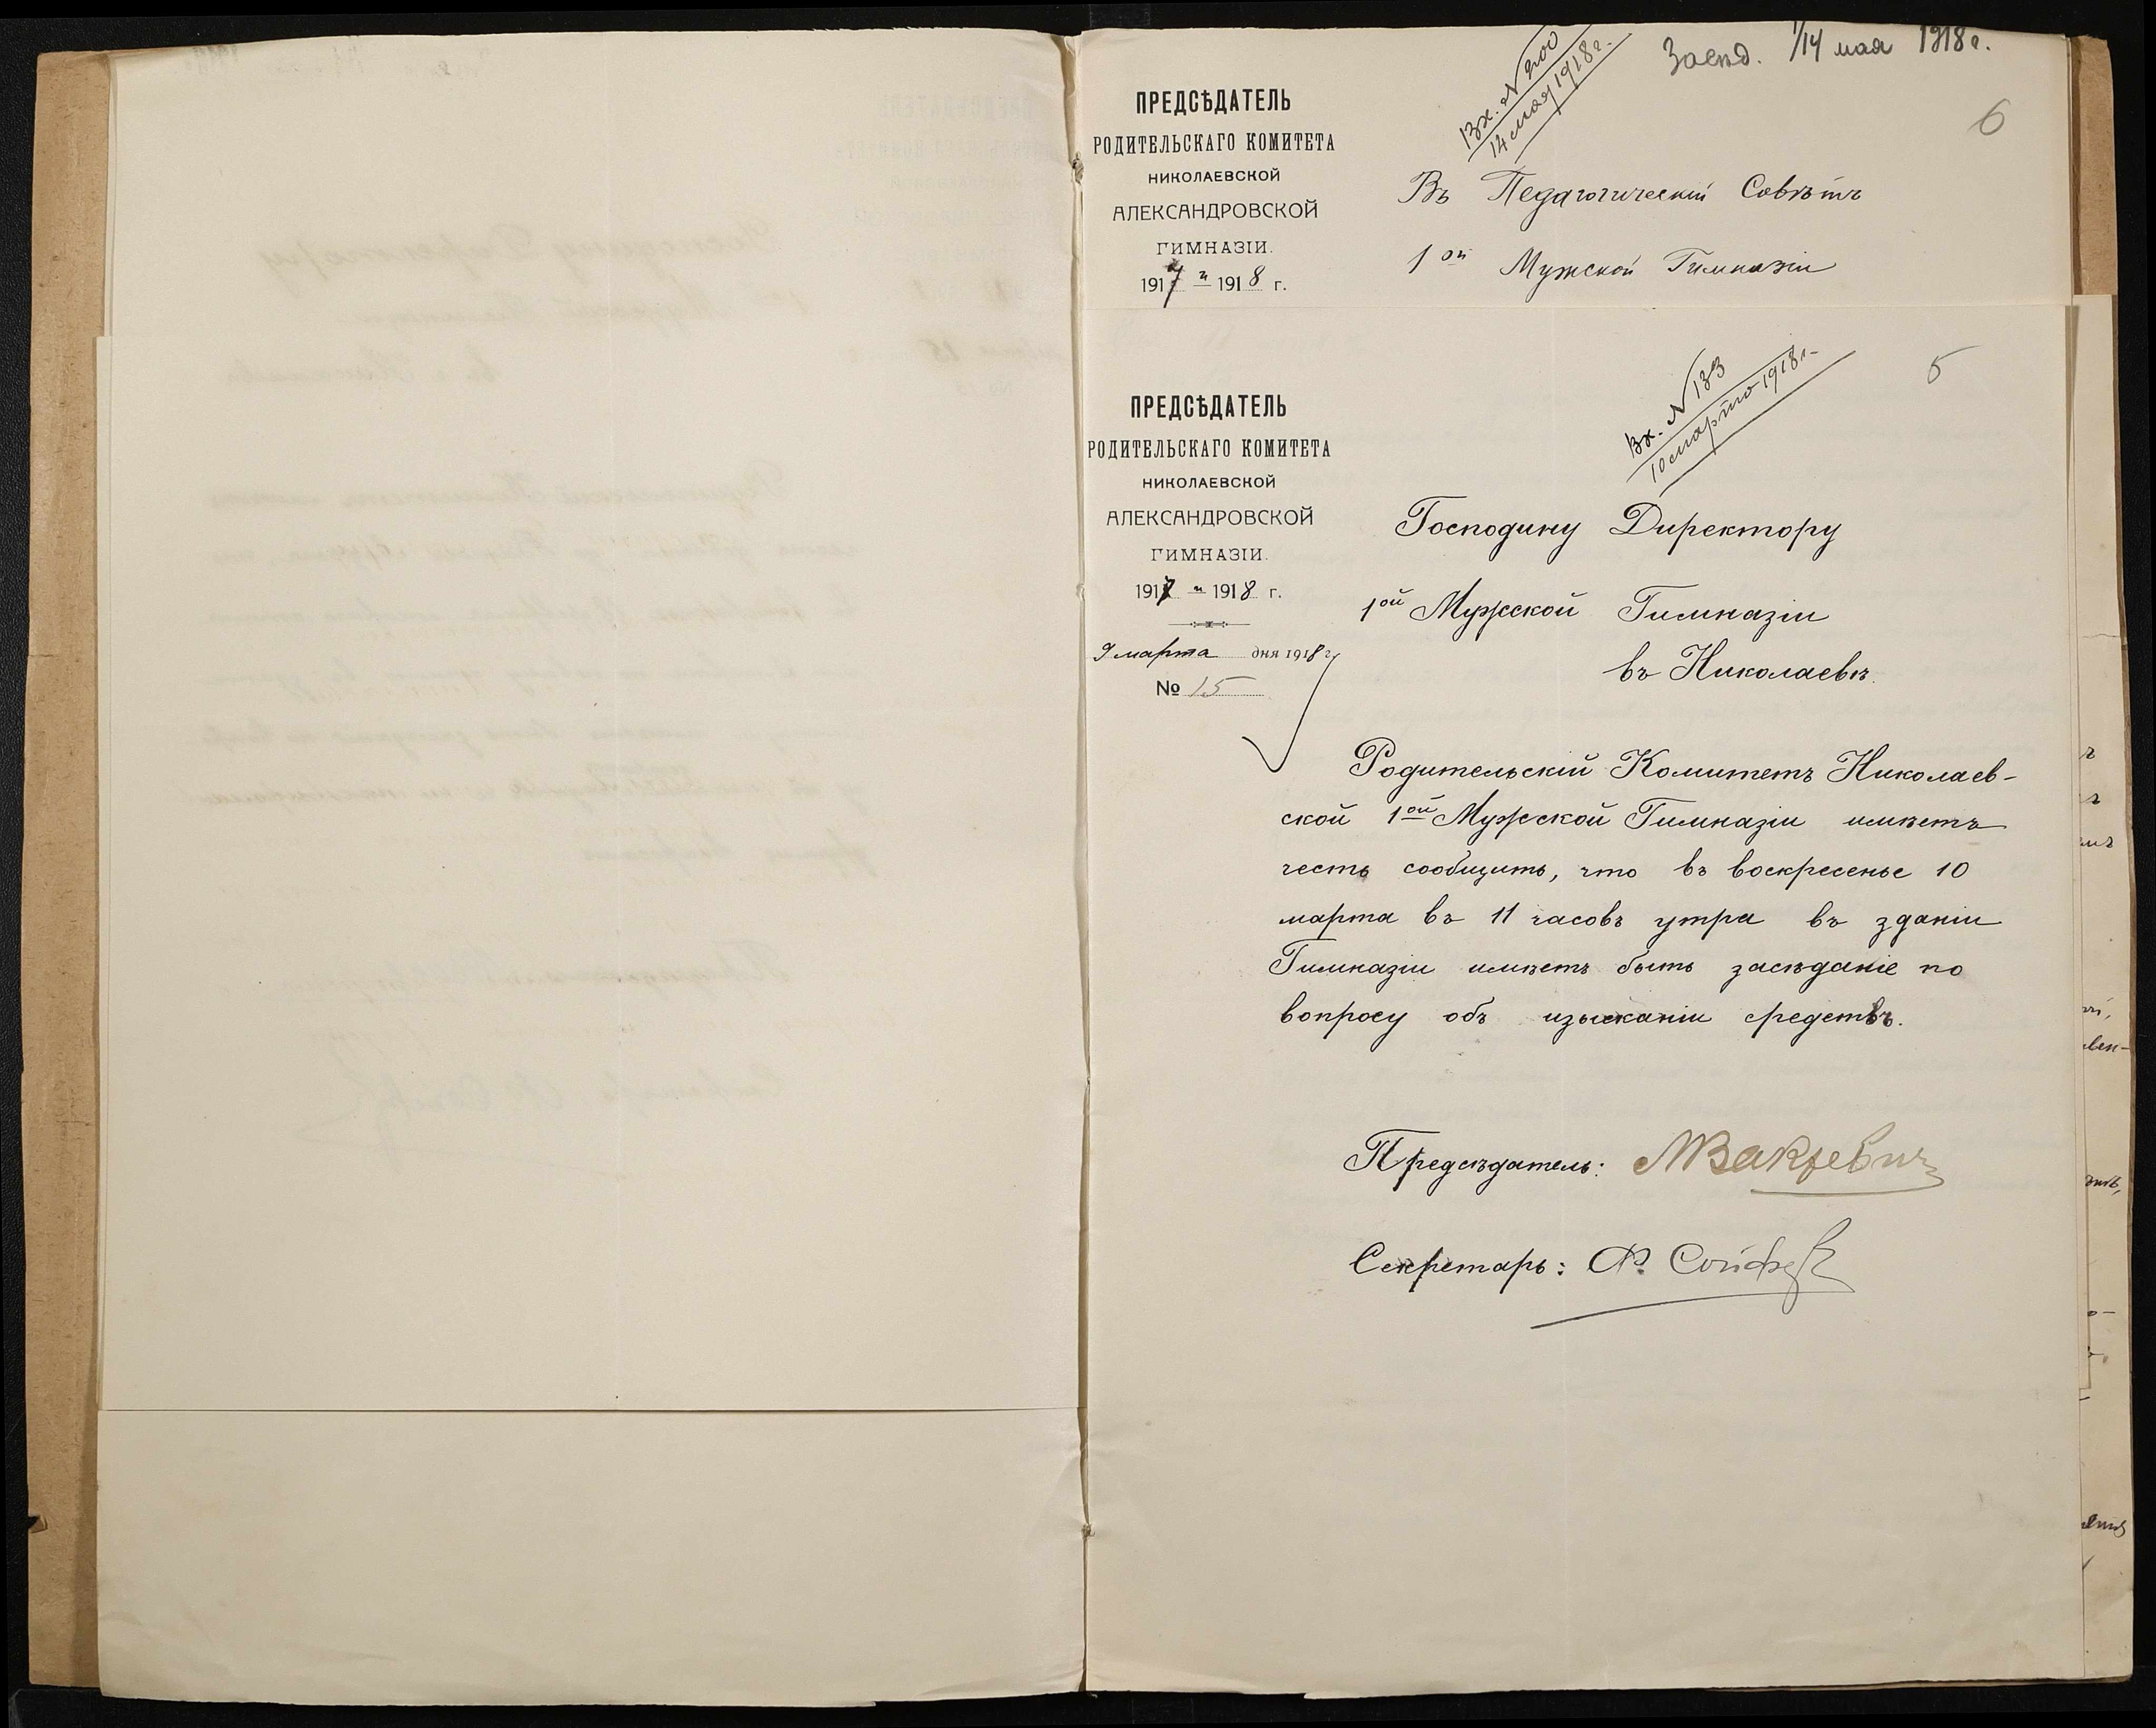 Засѣд. 1/14 мая 1918 г.
Вх. № 200
14 мая 1918 г.
6
ПРЕДСѢДАТЕЛЬ
РОДИТЕЛЬСКАГО КОМИТЕТА
НИКОЛАЕВСКОЙ
АЛЕКСАНДРОВСКОЙ
ГИМНАЗІИ.
1917 и 1918 г.
Въ Педагогическій Совѣтъ
1ой Мужской Гимназіи
5
Вх. № 133
10 марта 1918 г.
ПРЕДСѢДАТЕЛЬ
РОДИТЕЛЬСКАГО КОМИТЕТА
НИКОЛАЕВСКОЙ
АЛЕКСАНДРОВСКОЙ
ГИМНАЗІИ.
1917 и 1918 г.
9 марта дня 1918 г.
№ 15
Господину Директору
1ой Мужской Гимназіи
въ Николаевѣ.
Родительскій Комитетъ Николаев-
ской 1ой Мужской Гимназіи имѣетъ
честь сообщить, что въ воскресенье 10
марта въ 11 часовъ утра въ зданіи
Гимназіи имѣетъ быть засѣданіе по
вопросу объ изысканіи средствъ.
Предсѣдатель:
Секретарь: